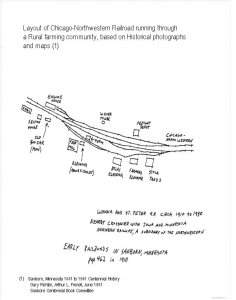 Layout of Chicago-Northwestern Railroad running through
a Rural farming community, based on Historical photographs
and maps (1)
ENGINE
HOUSE
WATER
TOWER
FREIGHT
DEPOT
SECTION
HOUSE
CHICAGO-
NORTH WESTERN
ELEVATOR
ELEVATOR
FARMERS
ELEVATOR
STOCK
YARDS
WINONA AND ST PETER R.R. CIRCA 1910 TO 1950
NEARBY CROSSOVER WITH IOWA AND MINNESOTA
NORTHERN RAILWAY, A SUBSIDIARY OF THE NORTHWESTERN
EARLY RAILROADS IN SANBORN, MINNESOTA
(1) Sanborn, Minnesota 1881 to 1981 Centennial History
Gary Richter, Arthur L. Finnell, June 1981
Sanborn Centennial Book Committee